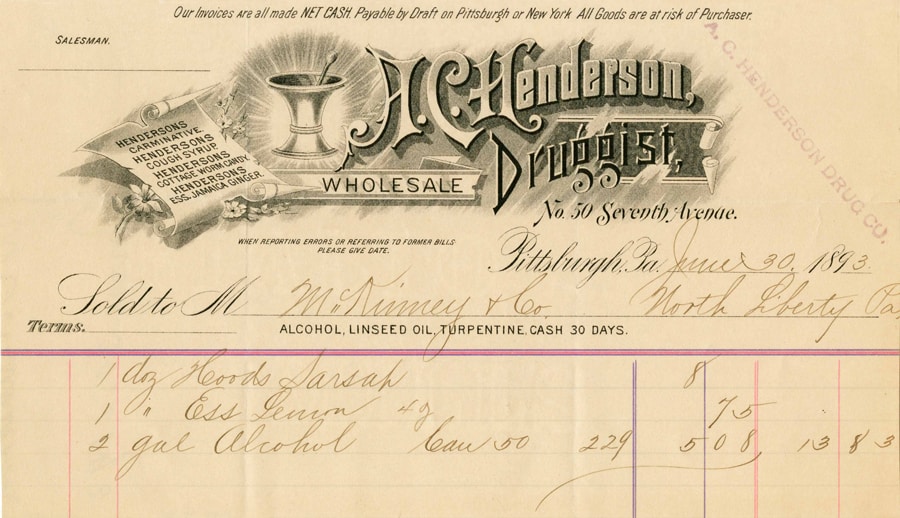 Our Invoices are all made NET CASH. Payable by Draft on Pittsburgh or New York All Goods are at risk of Purchaser.
SALESMAN.
A. C. HENDERSON DRUG CO.
A.C. Henderson,
Druggist,
WHOLESALE
HENDERSONS
CARMINATIVE.
HENDERSONS
COUGH SYRUP.
HENDERSONS
COTTAGE WORM CANDY.
HENDERSONS
ESS. JAMAICA GINGER.
No. 50 Seventh Avenue.
WHEN REPORTING ERRORS OR REFERRING TO FORMER BILLS
PLEASE GIVE DATE.
Pittsburgh, Pa. June 30. 1893.
Sold to M McKinney & Co. North Liberty Pa
Terms. ALCOHOL, LINSEED OIL, TURPENTINE, CASH 30 DAYS.
1 doz Hoods Sarsap 8
1 " Ess Lemon 4z 75
2 gal Alcohol Can 50 229 5 08 13 83